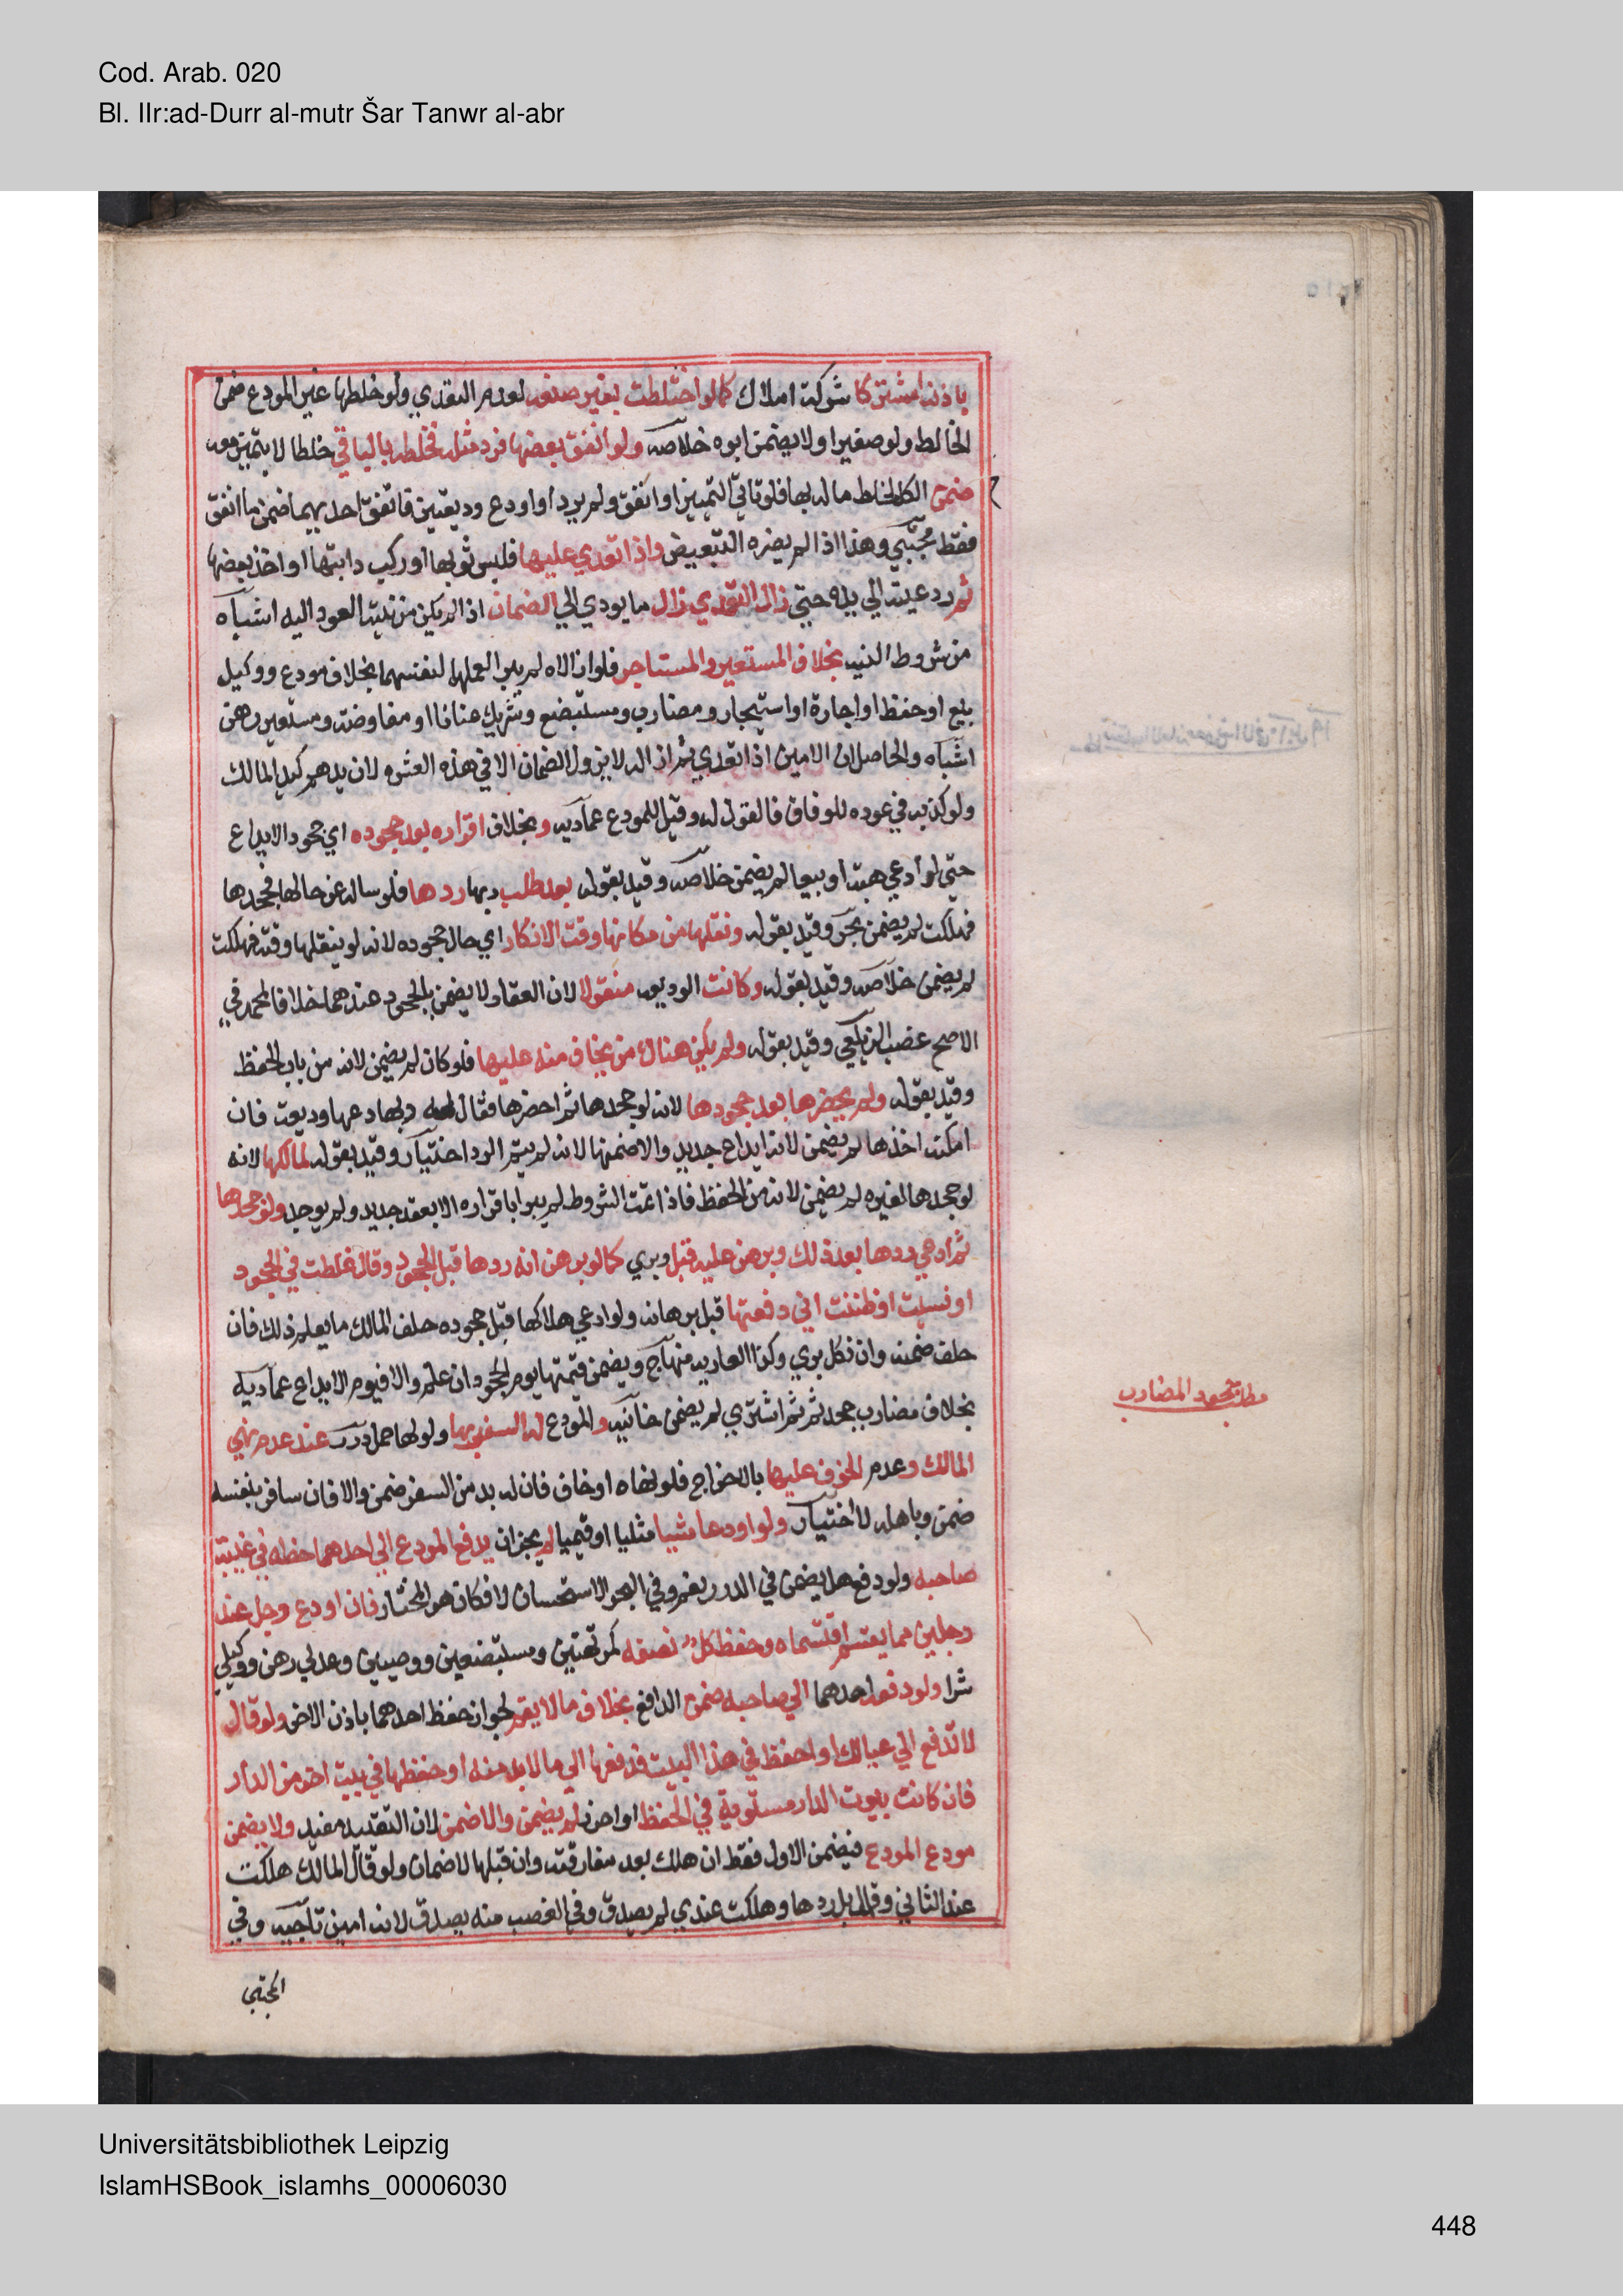 Cod. Arab. 020
Bl. IIr:ad-Durr al-mutr Šar Tanwr al-abr
باذنه اشتركا شركة املاك كما لو اختلطت بغير صنعه لعدم التعدي ولو خلطها غير المودع ضمن
الخالط ولو صغيرا ولا يضمن ابوه خلاصه ولو انفق بعضها فرد مثله فخلطه بالباقي خلطا لا يتميز معه
ضمن الكل لخلط ماله بها فلو تاتي التمييز او انفق ولم يرد او اودع وديعتين فانفق احديهما ضمن ما انفق
فقط مجتبي وهذا اذا لم يضره التبعيض واذا تعدي عليها فلبس ثوبها او ركب دابتها او اخذ بعضها
ثم رد عينه الي يده حتي زال التعدي زال ما يودي الي الضمان اذا لم يكن من نيته العود اليه اشباه
من شروط النيه بخلاف المستعير والمستاجر فلو ازالاه لم يبرا لعملهما لنفسهما بخلاف مودع ووكيل
بيع او حفظ او اجارة او استيجار ومضارب ومستبضع وشريك عنانا او مفاوضة ومستعير رهن
اشباه والحاصل ان الامين اذا تعدي ثم ازاله لا يزول الضمان الا في هذه العشره لان يدهم كيد المالك
ولو كذبه في عوده للوفاق فالقول له وقيل للمودع عماديه وبخلاف اقراره بعد جحوده اي جحود الايداع
حتي لو ادعي هبة او بيعا لم يضمن خلاصه وقيد بقوله بعد طلب ربها ردها فلو ساله عن حالها فجحدها
فهلكت لم يضمن بحر وقيد بقوله ونقلها من مكانها وقت الانكار اي حال جحوده لانه لو لم ينقلها وقته فهلكت
لم يضمن خلاصه وقيد بقوله وكانت الوديعه منقولا لان العقار لا يضمن بالجحود عندهما خلافا لمحمد في
الاصح غصب الزيلعي وقيد بقوله ولم يكن هناك من يخاف منه عليها فلو كان لم يضمن لانه من باب الحفظ
وقيد بقوله ولم يحضرها بعد جحودها لانه لو جحدها ثم احضرها فقال له ربها دعها وديعة فان
امكنه اخذها لم يضمن لانه ايداع جديد والا ضمنها لانه لم يتم الرد اختيار وقيد بقوله لمالكها لانه
لو جحدها لغيره لم يضمن لانه من الحفظ فاذا تمت الشروط لم يبرا باقراره الا بعقد جديد ولم يوجد ولو جحدها
ثم ادعي ردها بعد ذلك وبرهن عليه قبل وبري كما لو برهن انه ردها قبل الجحود وقال غلطت في الجحود
او نسيت او ظننت اني دفعتها قبل برهانه ولو ادعي هلاكها قبل جحوده حلف المالك ما يعلم ذلك فان
حلف ضمنه وان نكل بري وكذا العاريه منهاج ويضمن قيمتها يوم الجحود ان علم والا فيوم الايداع عماديه
بخلاف مضارب جحد ثم اشتري لم يضمن خانيه والمودع له السفر بها ولو لها حمل درر عند عدم نهي
المالك وعدم الخوف عليها بالاخراج فلو نهاه او خاف فان له بد من السفر ضمن والا فان سافر بنفسه
ضمن وباهله لا اختيار ولو اودعا شيا مثليا او قيميا لم يجز ان يدفع المودع الي احدهما حظه في غيبة
صاحبه ولو دفع هل يضمن في الدرر نعم وفي البحر الاستحسان لا فكان هو المختار فان اودع رجل عند
رجلين مما يقسم اقتسماه وحفظ كل نصفه كمرتهنين ومستبضعين ووصيين وعدلي رهن ووكيلي
شرا ولو دفعه احدهما الي صاحبه ضمن الدافع بخلاف ما لا يقسم لجواز حفظ احدهما باذن الاخر ولو قال
لا تدفع الي عيالك او احفظ في هذا البيت فدفعها الي ما لا بد منه او حفظها في بيت اخر من الدار
فان كانت بيوت الدار مستوية في الحفظ او احرز لم يضمن والا ضمن لان التقييد مفيد ولا يضمن
مودع المودع فيضمن الاول فقط ان هلك بعد مفارقته وان قبلها لا ضمان ولو قال المالك هلكت
عند الثاني وقال بل ردها وهلكت عندي لم يصدق وفي الغصب منه يصدق لانه امين تاجيه وفي
المجتبي
مطلب جحود المضارب
Universitätsbibliothek Leipzig
IslamHSBook_islamhs_00006030
448